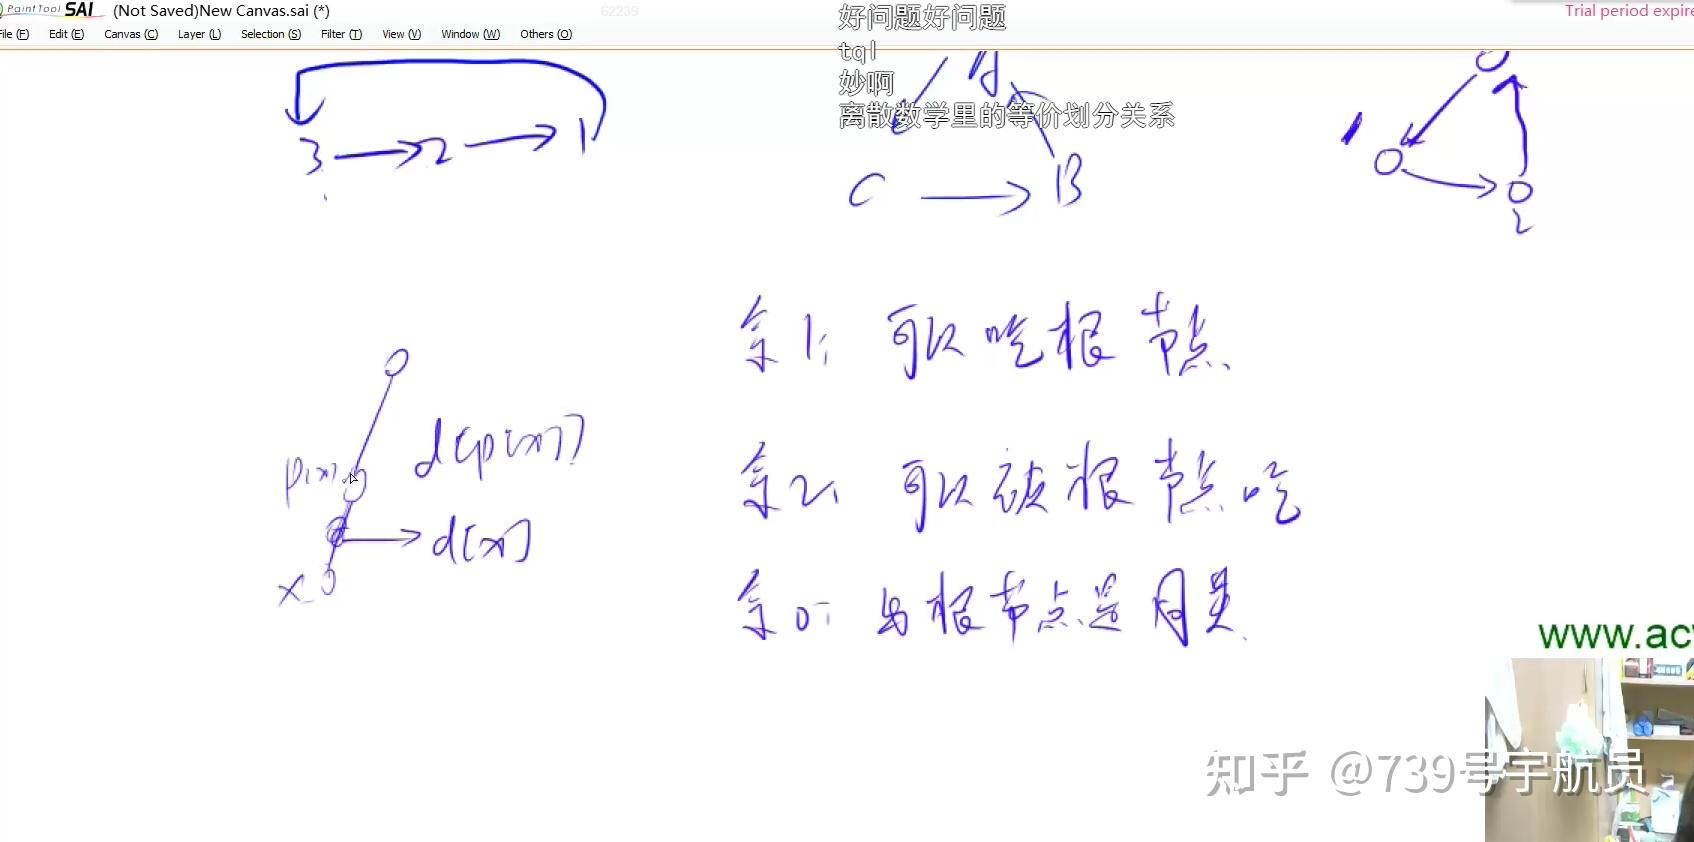 PaintTool SAI (Not Saved)New Canvas.sai (*) 62239 Trial period expire
File (F) Edit (E) Canvas (C) Layer (L) Selection (S) Filter (T) View (V) Window (W) Others (O)
好问题好问题
tql
妙啊
离散数学里的等价划分关系
3 → 2 → 1
A
C → B
1
2
余1: 可以吃根节点.
d[p[x]]
p[x]
余2: 可以被根节点吃
d[x]
x
余0: 与根节点是同类.
www.ac
知乎 @739号宇航员